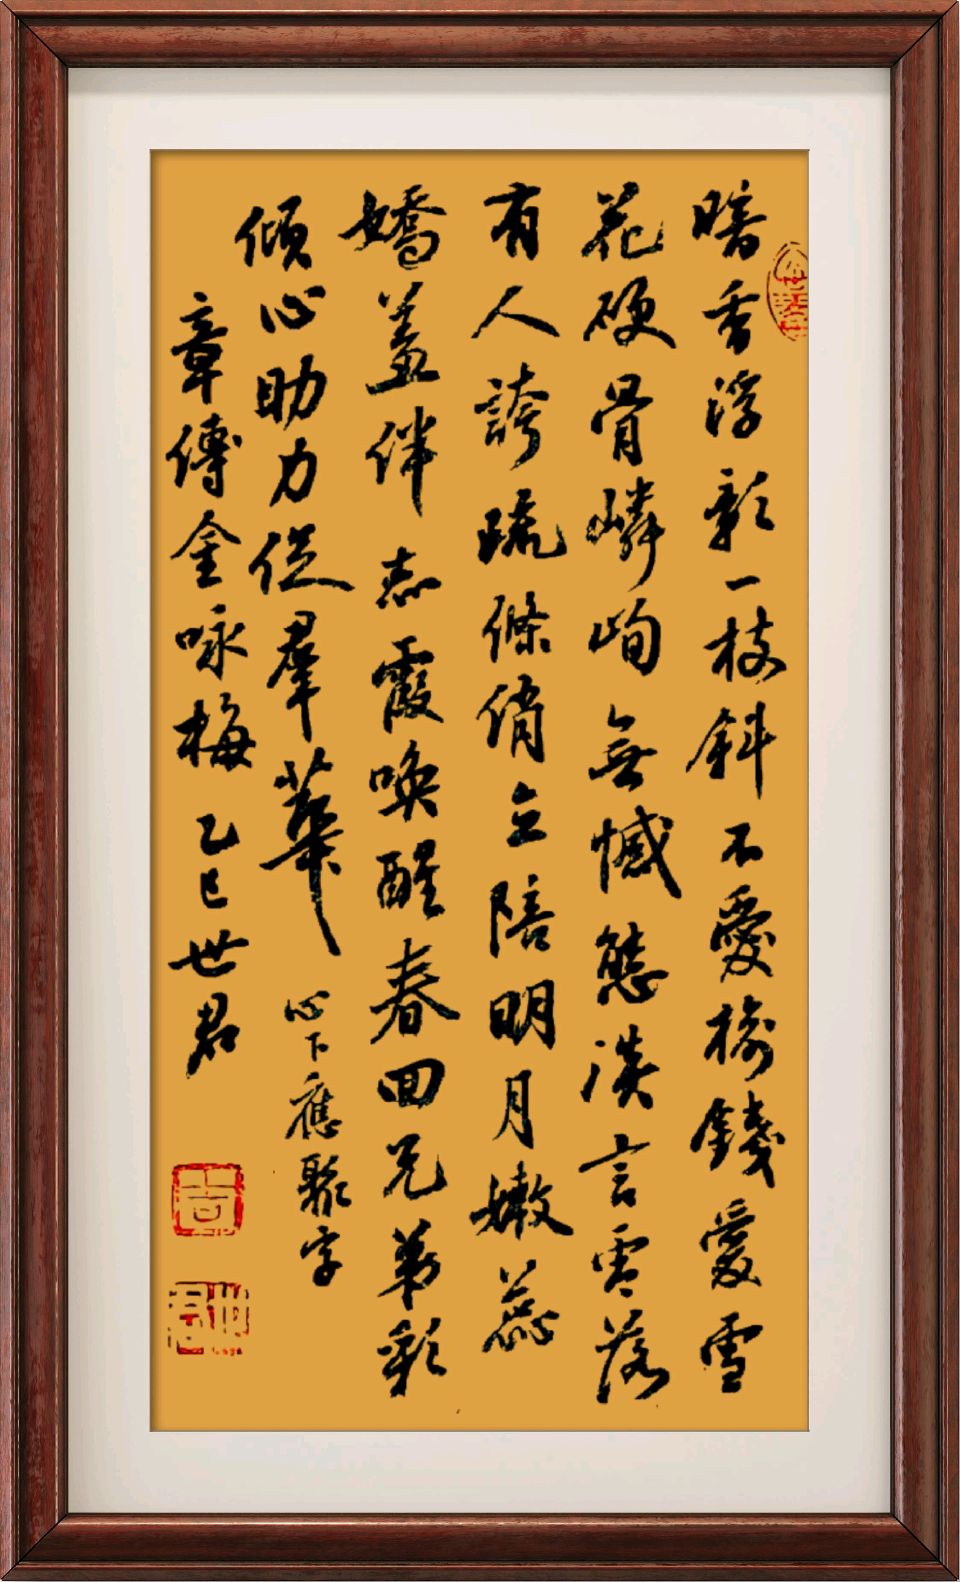 暗香浮影一枝斜不愛榆錢愛雪
花硬骨嶙峋無憾態淡言零落
有人誇疏條俏立陪明月嫩蕊
嬌羞伴志霞喚醒春回兄弟彩
傾心助力促羣華
心下應聚字
章傳金咏梅乙巳世君